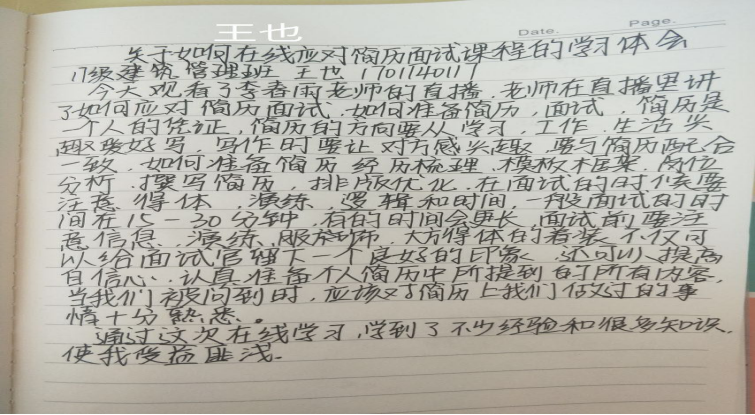 王也
Date.
Page.
关于如何在线应对简历面试课程的学习体会
17级建筑管理班 王也 1701140117
今天观看了李春雨老师的直播,老师在直播里讲
了如何应对简历面试,如何准备简历,面试,简历是
一个人的凭证,简历的方向要从学习,工作,生活兴
趣爱好写,写作时要让对方感兴趣,要与简历配合
一致,如何准备简历 经历梳理,模板框架,岗位
分析,撰写简历,排版优化,在面试的时候要
注意 得体,演练,逻辑和时间,一般面试的时
间在15-30分钟,有的时间会更长,面试前要注
意信息,演练,服饰,大方得体的着装不仅可
以给面试官留下一个良好的印象,还可以提高
自信心,认真准备个人简历中所提到的所有内容,
当我们被问到时,应该对简历上我们做过的事
情十分熟悉。
通过这次在线学习,学到了不少经验和很多知识,
使我受益匪浅.